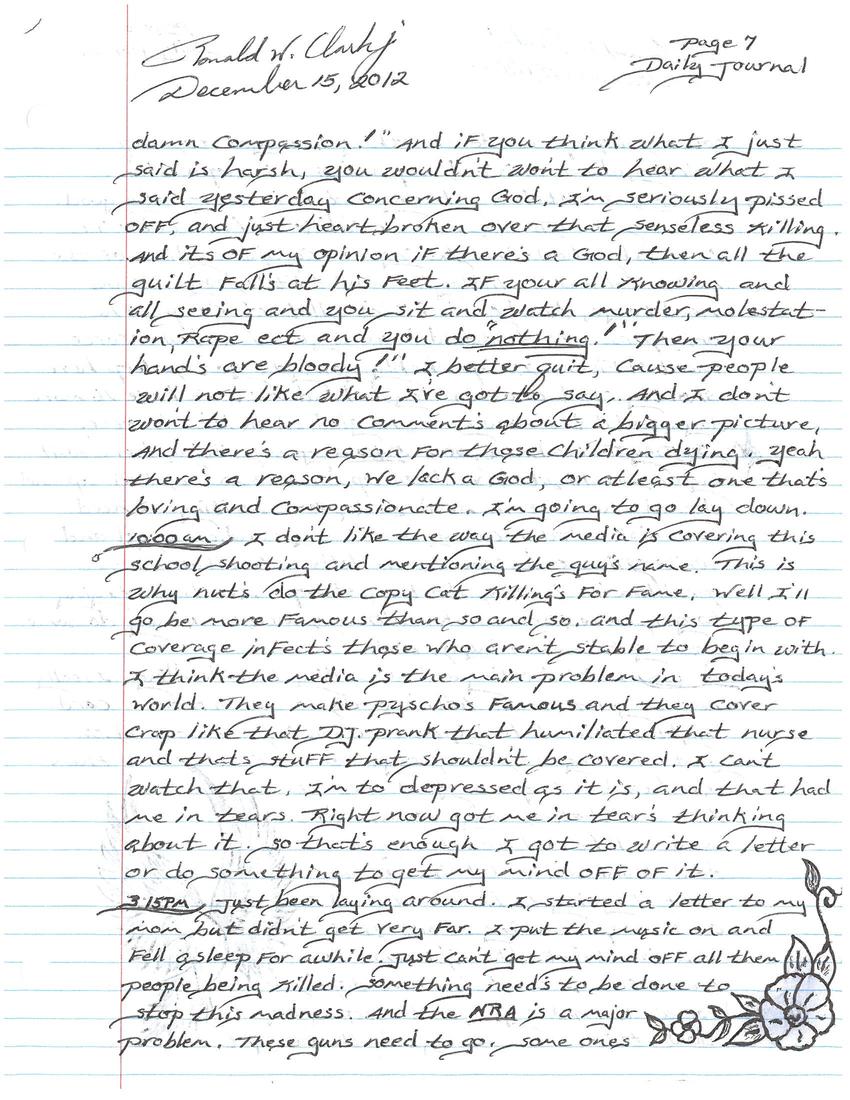 Ronald W. Clark jr
December 15, 2012
page 7
Daily Journal
damn Compassion!" And if you think what I just
said is harsh, you wouldn't wont to hear what I
said yesterday concerning God, I'm seriously pissed
off, and just heart broken over that senseless killing.
And its of my opinion if there's a God, then all the
guilt Fall's at his Feet. If your all knowing and
all seeing and you sit and watch murder, molestat-
ion, Rape ect and you do "nothing!" Then your
hand's are bloody!" I better quit, Cause people
will not like what I've got to say. And I don't
won't to hear no Comment's about a bigger picture,
And there's a reason For those Children dying. Yeah
there's a reason, We lack a God, or atleast one that's
loving and Compassionate. I'm going to go lay down.
10:00am I don't like the way the media is covering this
school shooting and mentioning the guy's name. This is
why nut's do the Copy Cat Killing's For Fame, Well I'll
go be more Famous than so and so. and this type of
Coverage infect's those who aren't stable to begin with.
I think the media is the main problem in today's
world. They make pyschos Famous and they cover
Crap like that D.J. prank that humiliated that nurse
and thats stuff that shouldn't be covered. I can't
watch that, I'm to depressed as it is, and that had
me in tears. Right now got me in tear's thinking
about it. so that's enough I got to write a letter
or do something to get my mind off of it.
3:15PM Just been laying around. I started a letter to my
mom but didn't get very Far. I put the music on and
Fell asleep For awhile. Just can't get my mind off all them
people being killed. something need's to be done to
stop this madness. And the NRA is a major
problem. These guns need to go. some ones